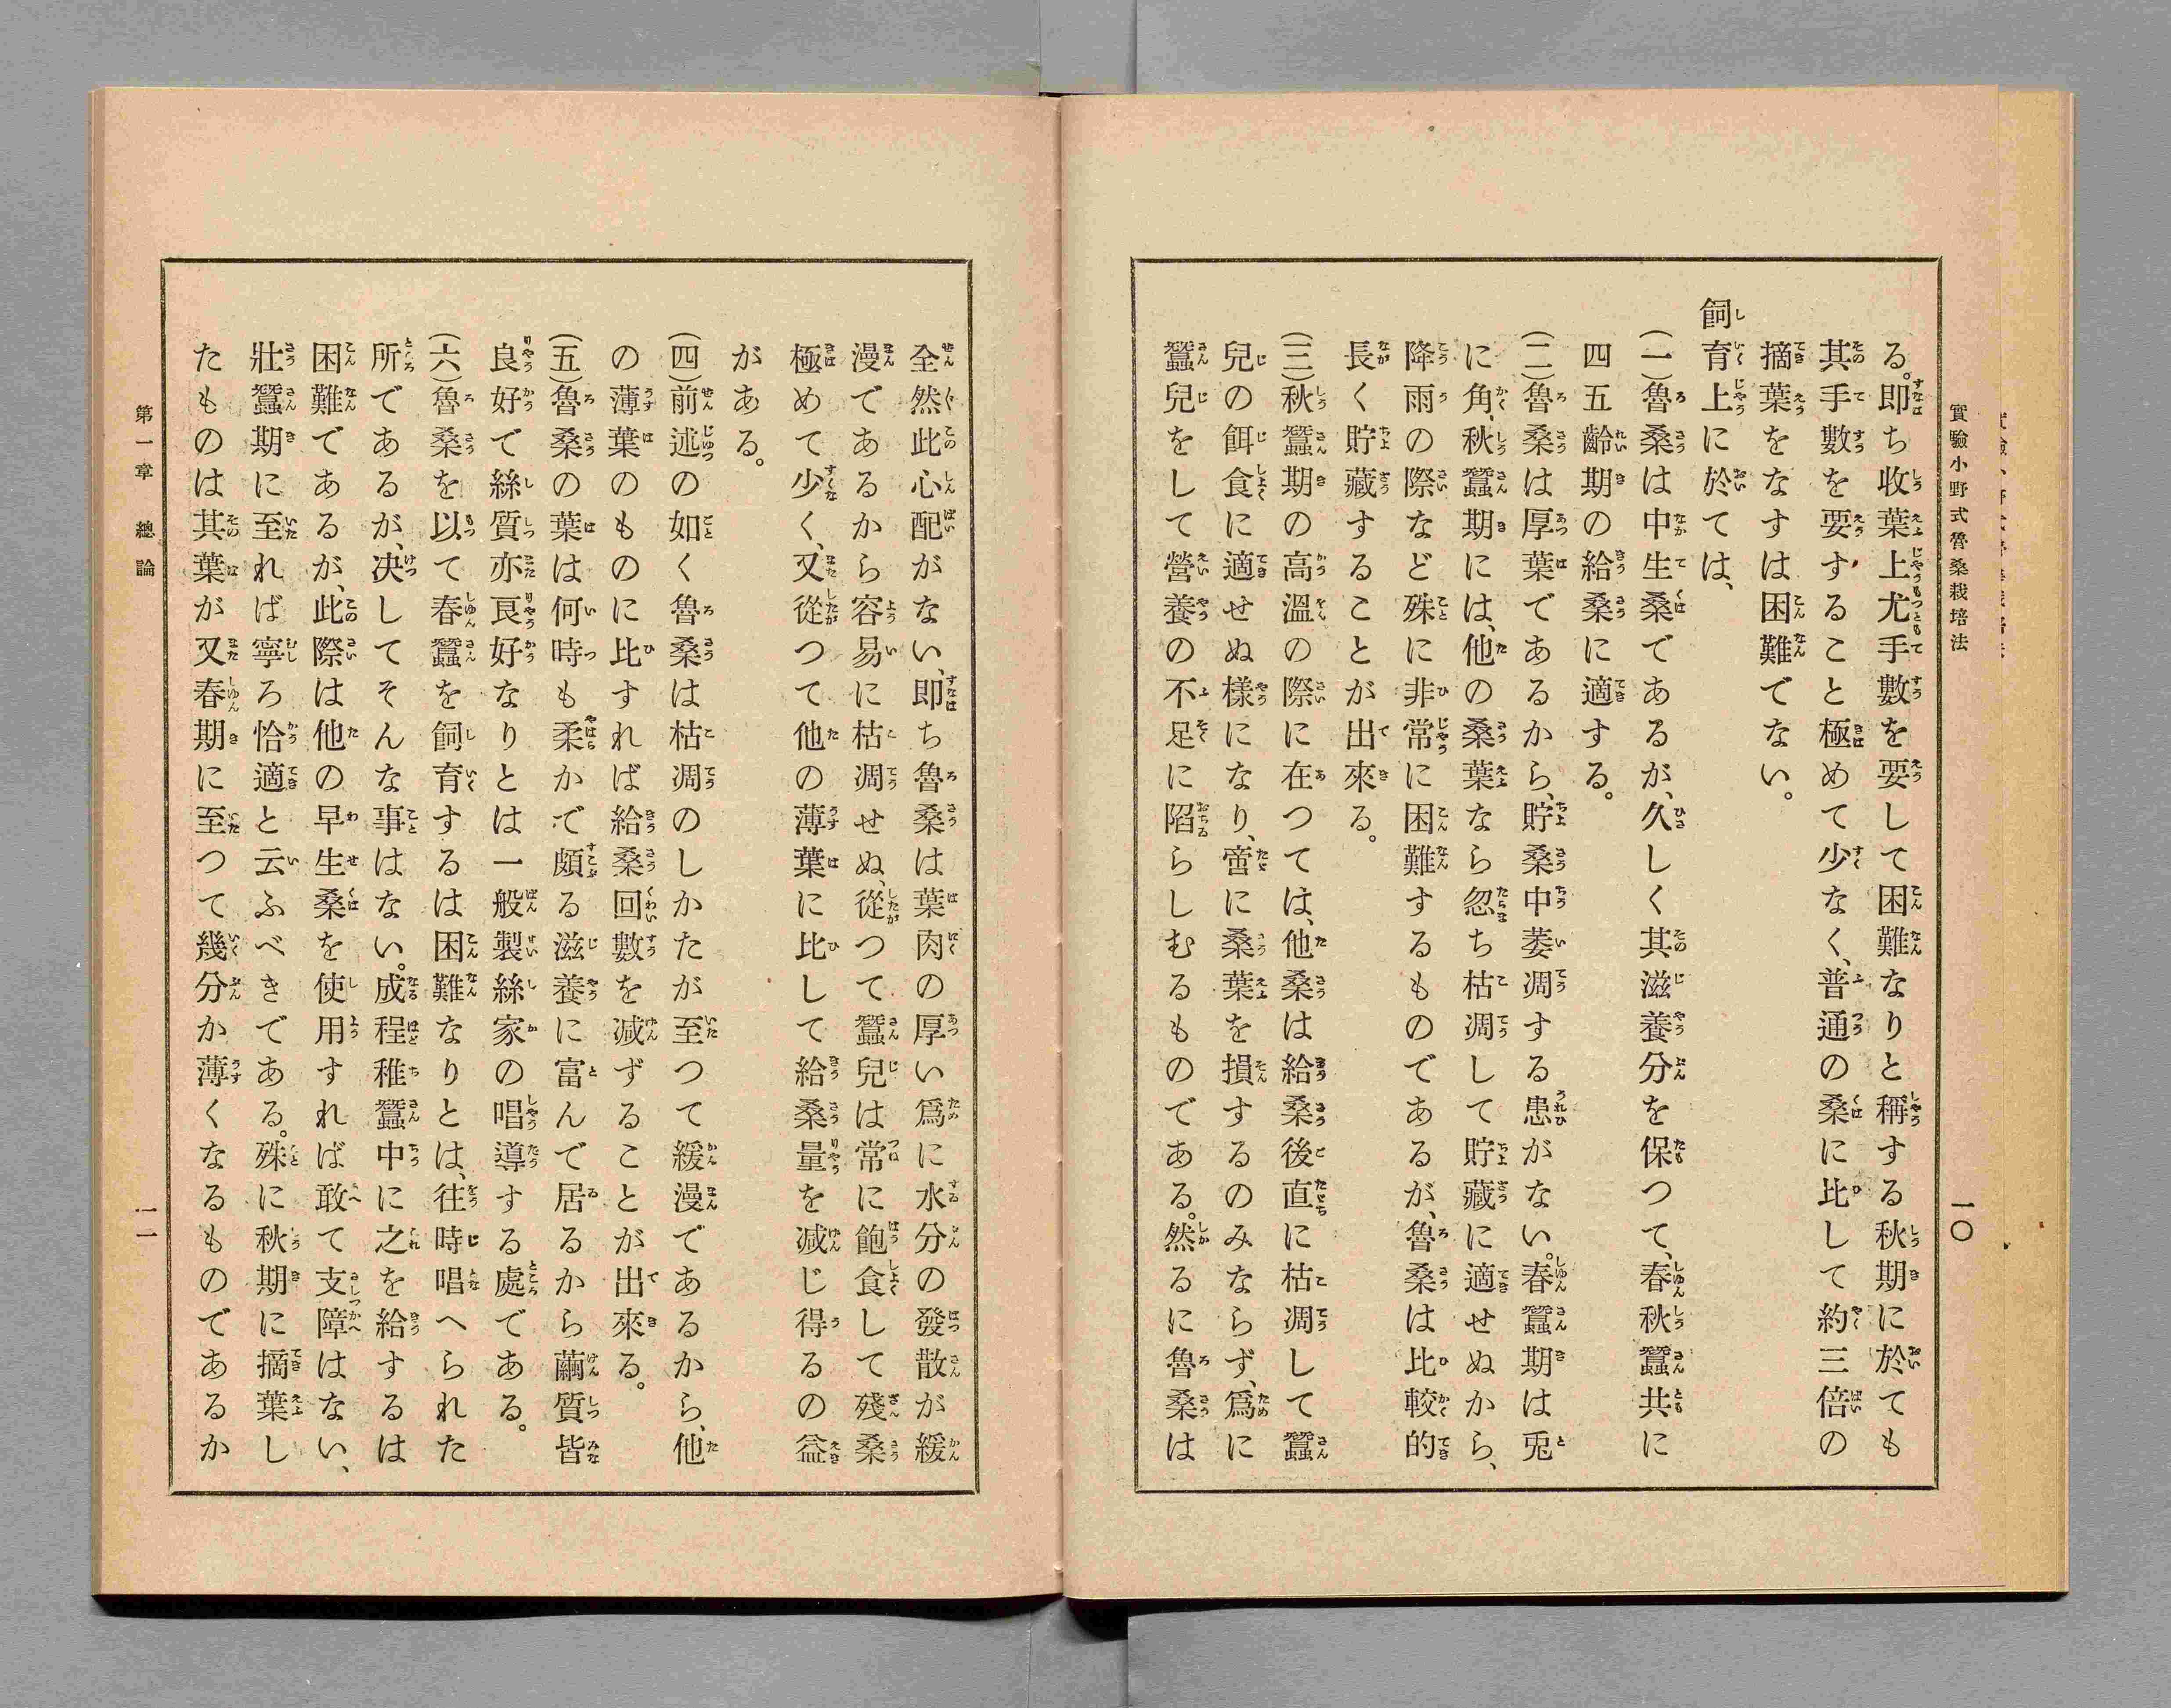 實驗小野式魯桑栽培法
一〇
る。即ち收葉上尤手數を要して困難なりと稱する秋期に於ても
其手數を要すること極めて少なく、普通の桑に比して約三倍の
摘葉をなすは困難でない。
飼育上に於ては、
(一)魯桑は中生桑であるが、久しく其滋養分を保つて、春秋蠶共に
四五齡期の給桑に適する。
(二)魯桑は厚葉であるから、貯桑中萎凋する患がない。春蠶期は兎
に角、秋蠶期には、他の桑葉なら忽ち枯凋して貯藏に適せぬから、
降雨の際など殊に非常に困難するものであるが、魯桑は比較的
長く貯藏することが出來る。
(三)秋蠶期の高溫の際に在つては、他桑は給桑後直に枯凋して蠶
兒の餌食に適せぬ樣になり、啻に桑葉を損するのみならず、爲に
蠶兒をして營養の不足に陷らしむるものである。然るに魯桑は
全然此心配がない、即ち魯桑は葉肉の厚い爲に水分の發散が緩
漫であるから容易に枯凋せぬ、從つて蠶兒は常に飽食して殘桑
極めて少く、又從つて他の薄葉に比して給桑量を减じ得るの益
がある。
(四)前述の如く魯桑は枯凋のしかたが至つて緩漫であるから、他
の薄葉のものに比すれば給桑回數を减ずることが出來る。
(五)魯桑の葉は何時も柔かで頗る滋養に富んで居るから繭質皆
良好で絲質亦良好なりとは一般製絲家の唱導する處である。
(六)魯桑を以て春蠶を飼育するは困難なりとは、往時唱へられた
所であるが、决してそんな事はない。成程稚蠶中に之を給するは
困難であるが、此際は他の早生桑を使用すれば敢て支障はない、
壯蠶期に至れば寧ろ恰適と云ふべきである。殊に秋期に摘葉し
たものは其葉が又春期に至つて幾分か薄くなるものであるか
第一章　總論
一一